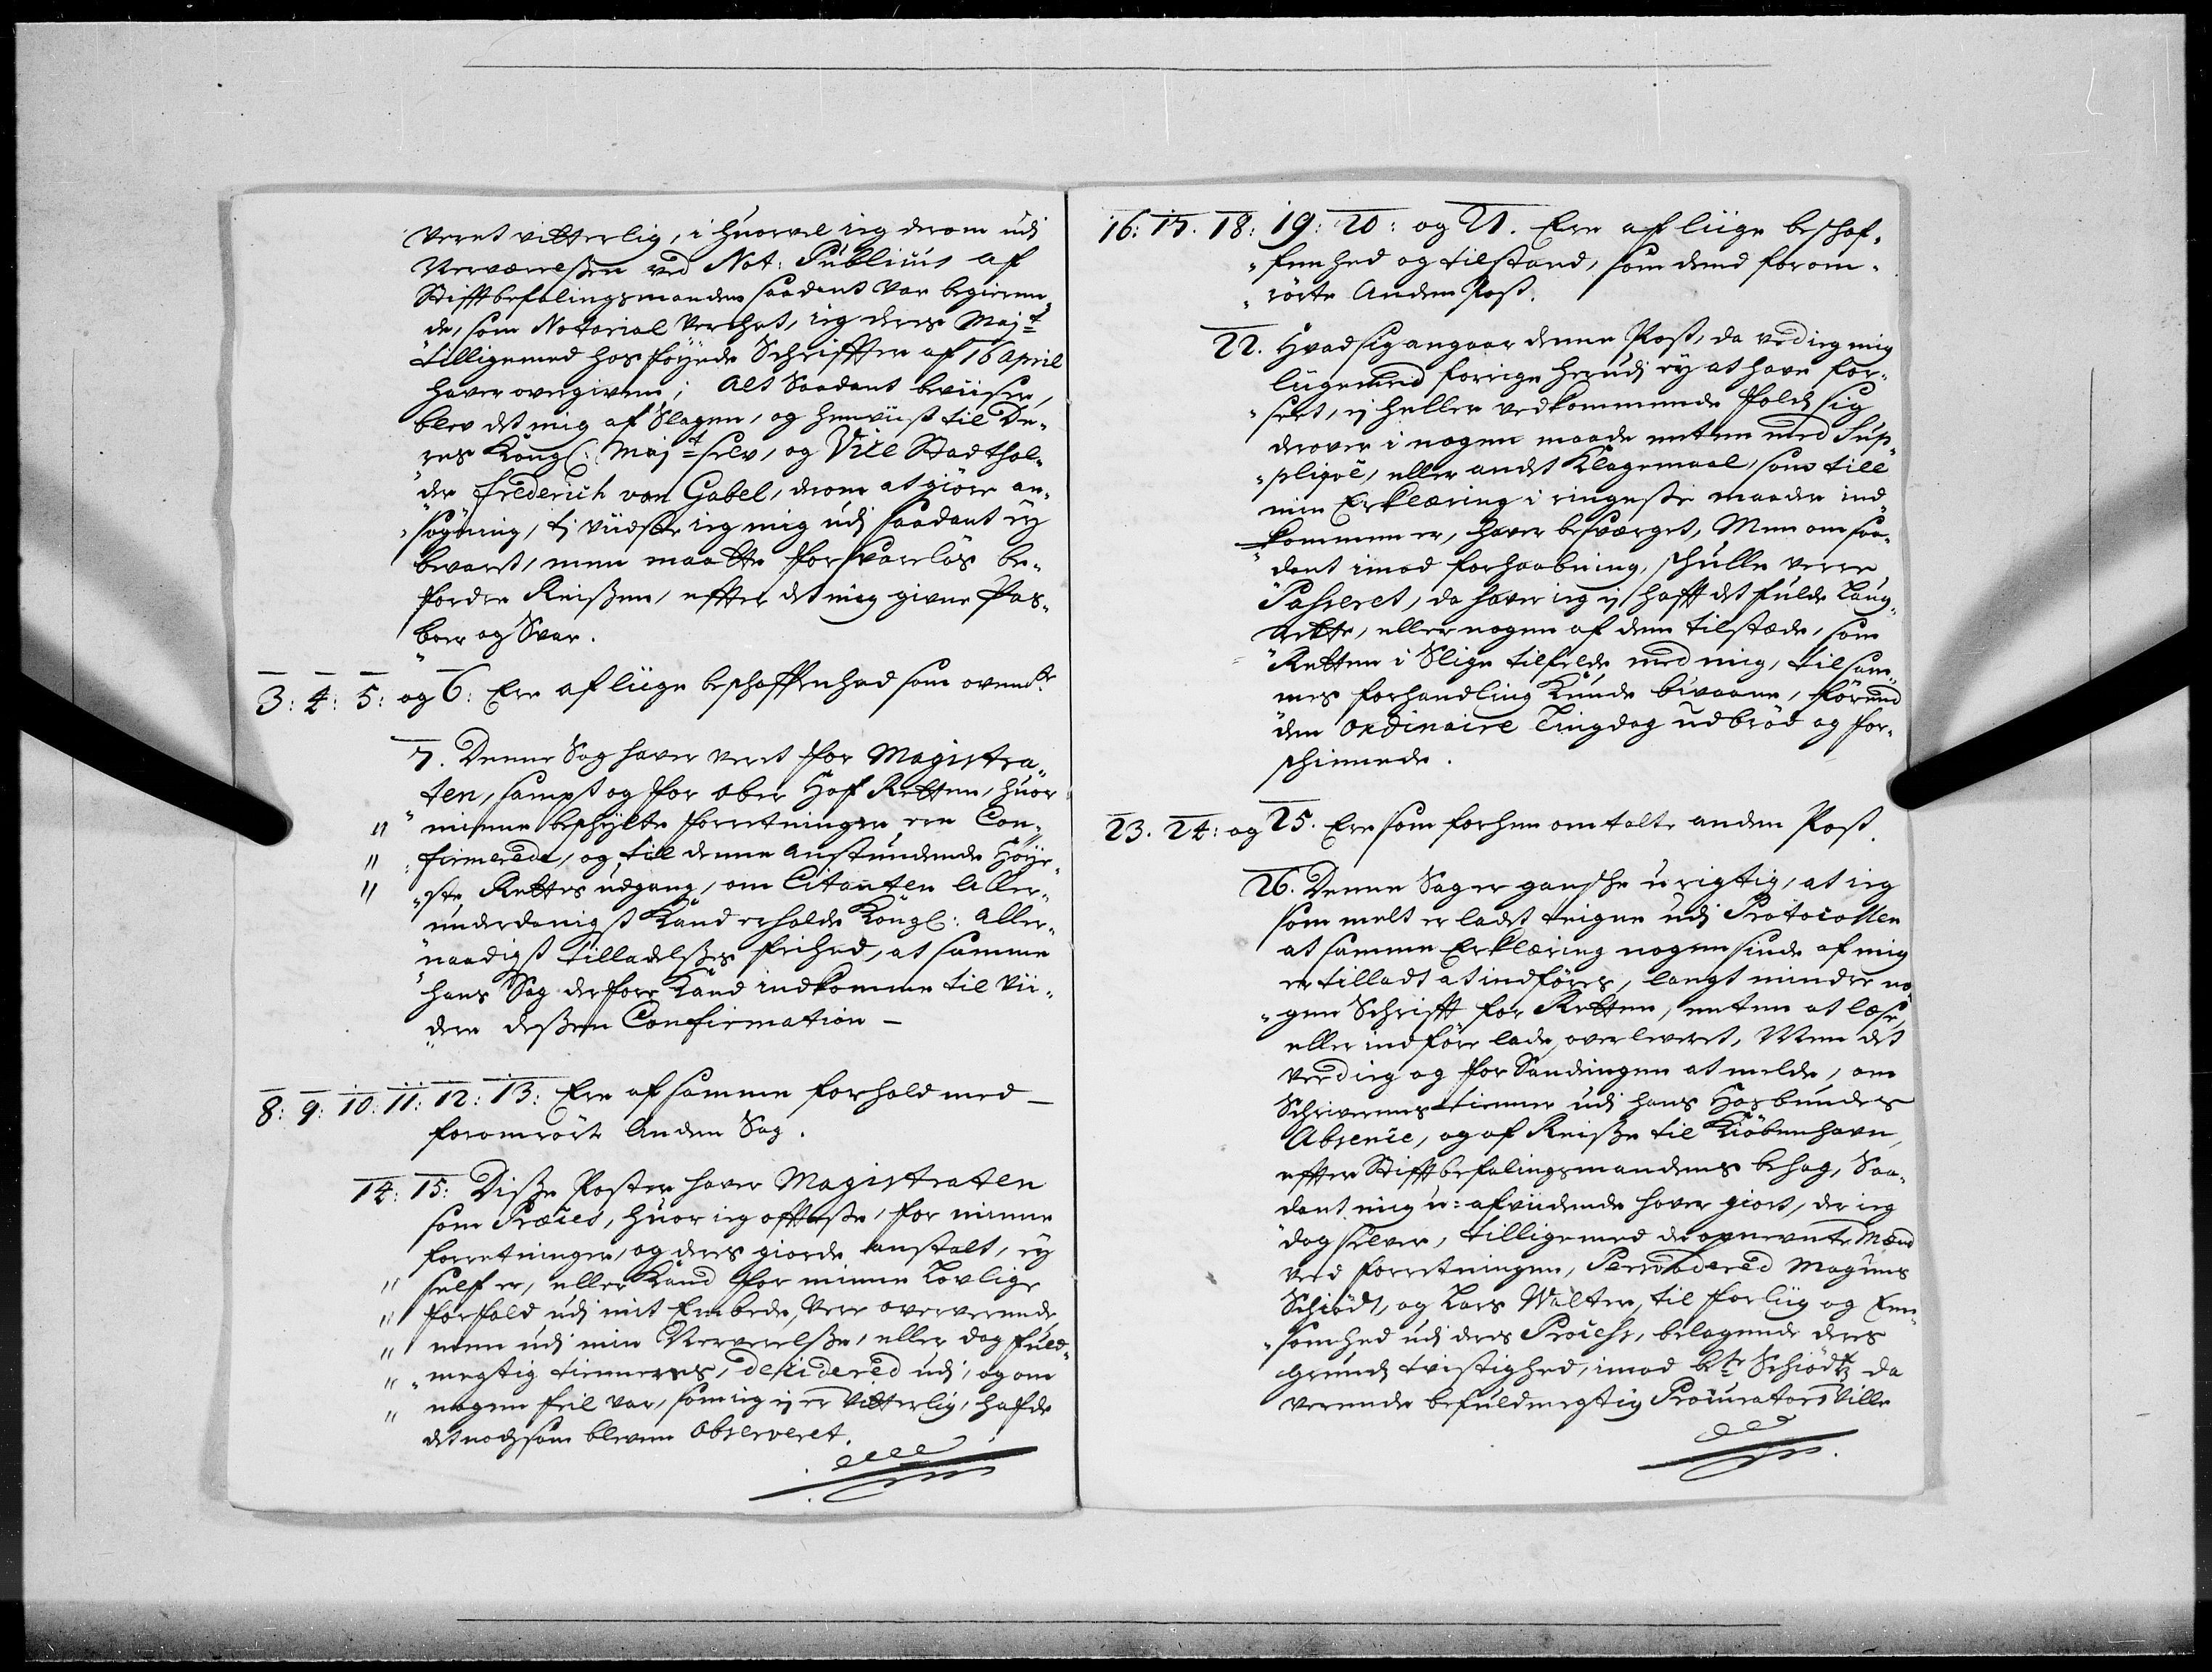 veret vitterlig, i huorvel ieg derom udj
Nerværelßen ved Not: Publicus af
Stifftbefalingsmanden saadant var begieren„
„de, som Notarial verchet, ieg deres Majt
tilligemed hosføyede Schriffter af 16 April
haver overgiven; Alt Saadant beviiser,
blev det mig af Slagen, og henviist til De„
res Kongl: Majt selv, og Vice Stadthol„
„der Frederich von Gabel, derom at giøre an„
„søgning, tj viidste ieg mig udj saadant ey
bevaret, men maatte forsvareløs be„
fordre Reißen, effter det mig givne Pas„
bor og Svar.
3: 4: 5: og 6: Ere af liige beschaffenhed som ovenbte
7. Denne Sag haver veret for Magistra„
ten, sampt og for Ober Hof Retten, huor
„ minne beschyldte forretninger ere Con„
„ firmerede, og till denne anstundende Høye„
„ „ste Rettes udgang, om Citanten Aller„
underdanigst Kand erholde Kongl: Aller„
naadigst tilladelßes frihed, at samme
hans Sag derfore Kand indkomme til vii„
dere deßen Confirmation –
8: 9: 10: 11: 12: 13: Ere af samme forhold med –
foromrørte Anden Sag.
14: 15: Diße Poster haver Magistraten
som Præces, huor ieg offteste, for minne
forretninger, og deres giorde anstalt, ey
„ self er, eller Kand for minne Lovlige
„ forfald udj mit Embede, vere oververende
„ men udj min Nerverelße, eller dog fuld„
„ „megtig tienneres, decidered udj, og om
„ nogen feil var, som ieg ej er vitterlig, hafde
det nochsom bleven observeret.
16: 17. 18: 19: 20: og 21. Ere af liige beschaf„
„fenhed og tilstand, som dend forom„
„rørte Anden Post.
22. Hvad sig angaar denne Post, da ved ieg mig
liigemed forrige herudj ey at have for„
„seet, ej heller vedkommende Folch sig
derover i nogen maade enten med Sup„
„pliqve, eller andet Klagemaal, som till
min Erklæring i ringeste maader ind„
kommen er, haver besværget, Men om saa„
„dant imod forhaabning, schulle verre
Passeret, da haver ieg ej hafft det fulde Laug„
Rette, eller nogen af dem tilstæde, som
Retten i Slige tilfelde med mig, til sam„
mes forhandling Kunde bivaane, førend
den ordinaire Tingdag udbrød og for„
schinnede.
23. 24: og 25. Ere som forhen omtalte anden Post.
26. Denne Sag er gansche urigtig, at ieg
som melt er ladet teigne udj Protocollen
at samme Erklæring nogen sinde af mig
er tilladt at indføres, langt mindre no„
„gen Schrifft for Retten, enten at læse,
eller indføre lade, overleveret, Men det
ved ieg og for Sandingen at melde, om
Schriverens tienner udj hans Hosbondes
Absence, og af Reiße til Kiöbenhavn,
effter Stifftbefalingsmandens behag, Saa„
dant mig u-afviidende haver giort, der ieg
dog selver, tilligemed de opnevnte Mænd
ved forretningen, Persvadered Magnus
Schiødt, og Lars Walter, til forliig og Een„
„somhed udj deres Process, belagende deres
Grunds tvistighed, imod bte Schiødtz da
verende befuldmegtig Procurators Ville